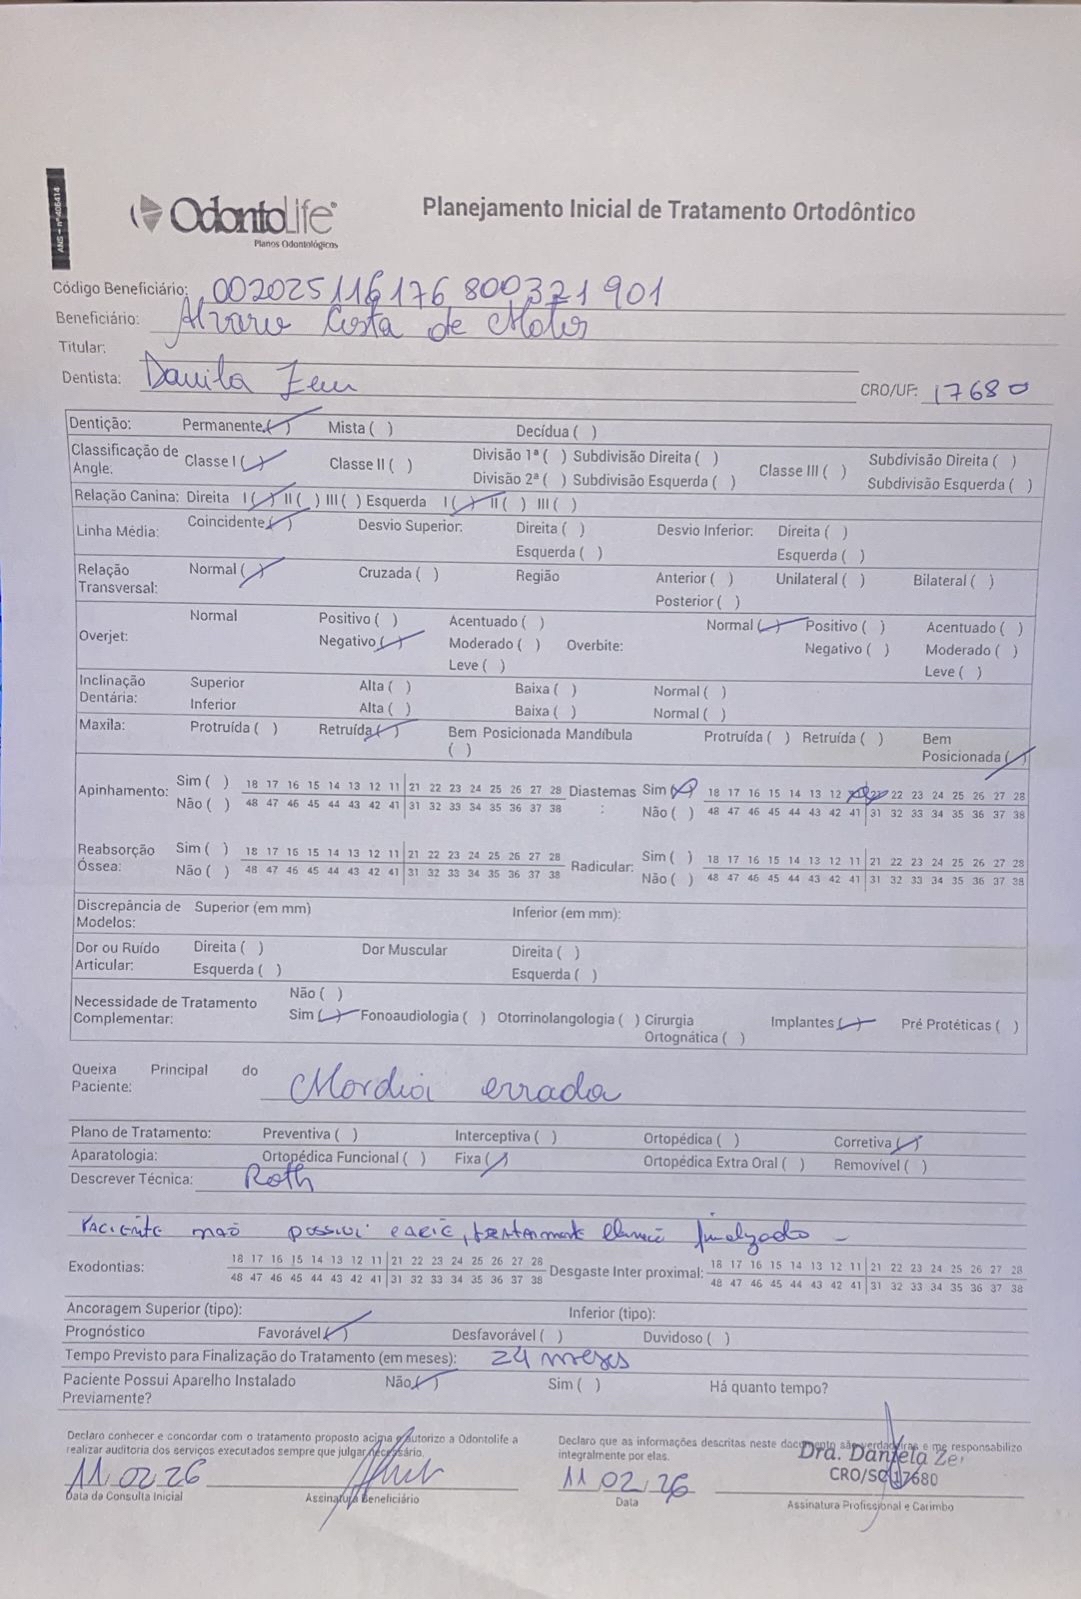 ANS - nº 406414
OdontoLife®
Planos Odontológicos
Planejamento Inicial de Tratamento Ortodôntico
Código Beneficiário: 002025116176800321901
Beneficiário: Alvaro Costa de
Titular:
Dentista: CRO/UF: 17680
Dentição: Permanente ( ) Mista ( ) Decídua ( )
Classificação de Angle: Classe I ( ) Classe II ( ) Divisão 1ª ( ) Subdivisão Direita ( ) Classe III ( ) Subdivisão Direita ( )
Divisão 2ª ( ) Subdivisão Esquerda ( ) Subdivisão Esquerda ( )
Relação Canina: Direita I ( ) II ( ) III ( ) Esquerda I ( ) II ( ) III ( )
Linha Média: Coincidente ( ) Desvio Superior: Direita ( ) Desvio Inferior: Direita ( )
Esquerda ( ) Esquerda ( )
Relação Transversal: Normal ( ) Cruzada ( ) Região Anterior ( ) Unilateral ( ) Bilateral ( )
Posterior ( )
Overjet: Normal Positivo ( ) Acentuado ( ) Overbite: Normal ( ) Positivo ( ) Acentuado ( )
Negativo ( ) Moderado ( ) Negativo ( ) Moderado ( )
Leve ( ) Leve ( )
Inclinação Dentária: Superior Alta ( ) Baixa ( ) Normal ( )
Inferior Alta ( ) Baixa ( ) Normal ( )
Maxila: Protruída ( ) Retruída ( ) Bem Posicionada ( ) Mandíbula Protruída ( ) Retruída ( ) Bem Posicionada ( )
Apinhamento: Sim ( ) 18 17 16 15 14 13 12 11 21 22 23 24 25 26 27 28 Diastemas: Sim ( ) 18 17 16 15 14 13 12 22 23 24 25 26 27 28
Não ( ) 48 47 46 45 44 43 42 41 31 32 33 34 35 36 37 38 Não ( ) 48 47 46 45 44 43 42 41 31 32 33 34 35 36 37 38
Reabsorção Óssea: Sim ( ) 18 17 16 15 14 13 12 11 21 22 23 24 25 26 27 28 Radicular: Sim ( ) 18 17 16 15 14 13 12 11 21 22 23 24 25 26 27 28
Não ( ) 48 47 46 45 44 43 42 41 31 32 33 34 35 36 37 38 Não ( ) 48 47 46 45 44 43 42 41 31 32 33 34 35 36 37 38
Discrepância de Modelos: Superior (em mm) Inferior (em mm):
Dor ou Ruído Articular: Direita ( ) Dor Muscular Direita ( )
Esquerda ( ) Esquerda ( )
Necessidade de Tratamento Complementar: Não ( )
Sim ( ) Fonoaudiologia ( ) Otorrinolangologia ( ) Cirurgia Ortognática ( ) Implantes ( ) Pré Protéticas ( )
Queixa Principal do Paciente: Mordia errada
Plano de Tratamento: Preventiva ( ) Interceptiva ( ) Ortopédica ( ) Corretiva ( )
Aparatologia: Ortopédica Funcional ( ) Fixa ( ) Ortopédica Extra Oral ( ) Removível ( )
Descrever Técnica: Roth
Paciente não possui finalizado -
Exodontias: 18 17 16 15 14 13 12 11 21 22 23 24 25 26 27 28 Desgaste Inter proximal: 18 17 16 15 14 13 12 11 21 22 23 24 25 26 27 28
48 47 46 45 44 43 42 41 31 32 33 34 35 36 37 38 48 47 46 45 44 43 42 41 31 32 33 34 35 36 37 38
Ancoragem Superior (tipo): Inferior (tipo):
Prognóstico Favorável ( ) Desfavorável ( ) Duvidoso ( )
Tempo Previsto para Finalização do Tratamento (em meses): 24 meses
Paciente Possui Aparelho Instalado Previamente? Não ( ) Sim ( ) Há quanto tempo?
Declaro conhecer e concordar com o tratamento proposto acima e autorizo a Odontolife a
realizar auditoria dos serviços executados sempre que julgar necessário.
Declaro que as informações descritas neste documento são verdadeiras e me responsabilizo
integralmente por elas.
Dra. Daniela Zer
CRO/SC 17680
11 02 26
Data da Consulta Inicial
Assinatura Beneficiário
11 02 26
Data
Assinatura Profissional e Carimbo